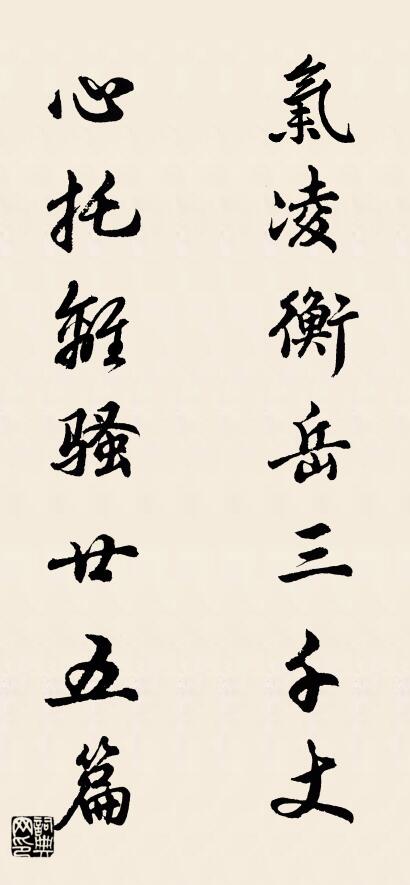 氣凌衡岳三千丈
心托離骚廿五篇
詞典网印